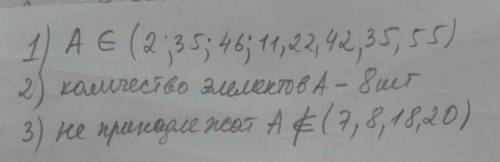 1) A ∈ (2; 35; 46; 11, 22, 42, 35, 55)
2) количество элементов A – 8 шт
3) не принадлежат A ∉ (7, 8, 18, 20)